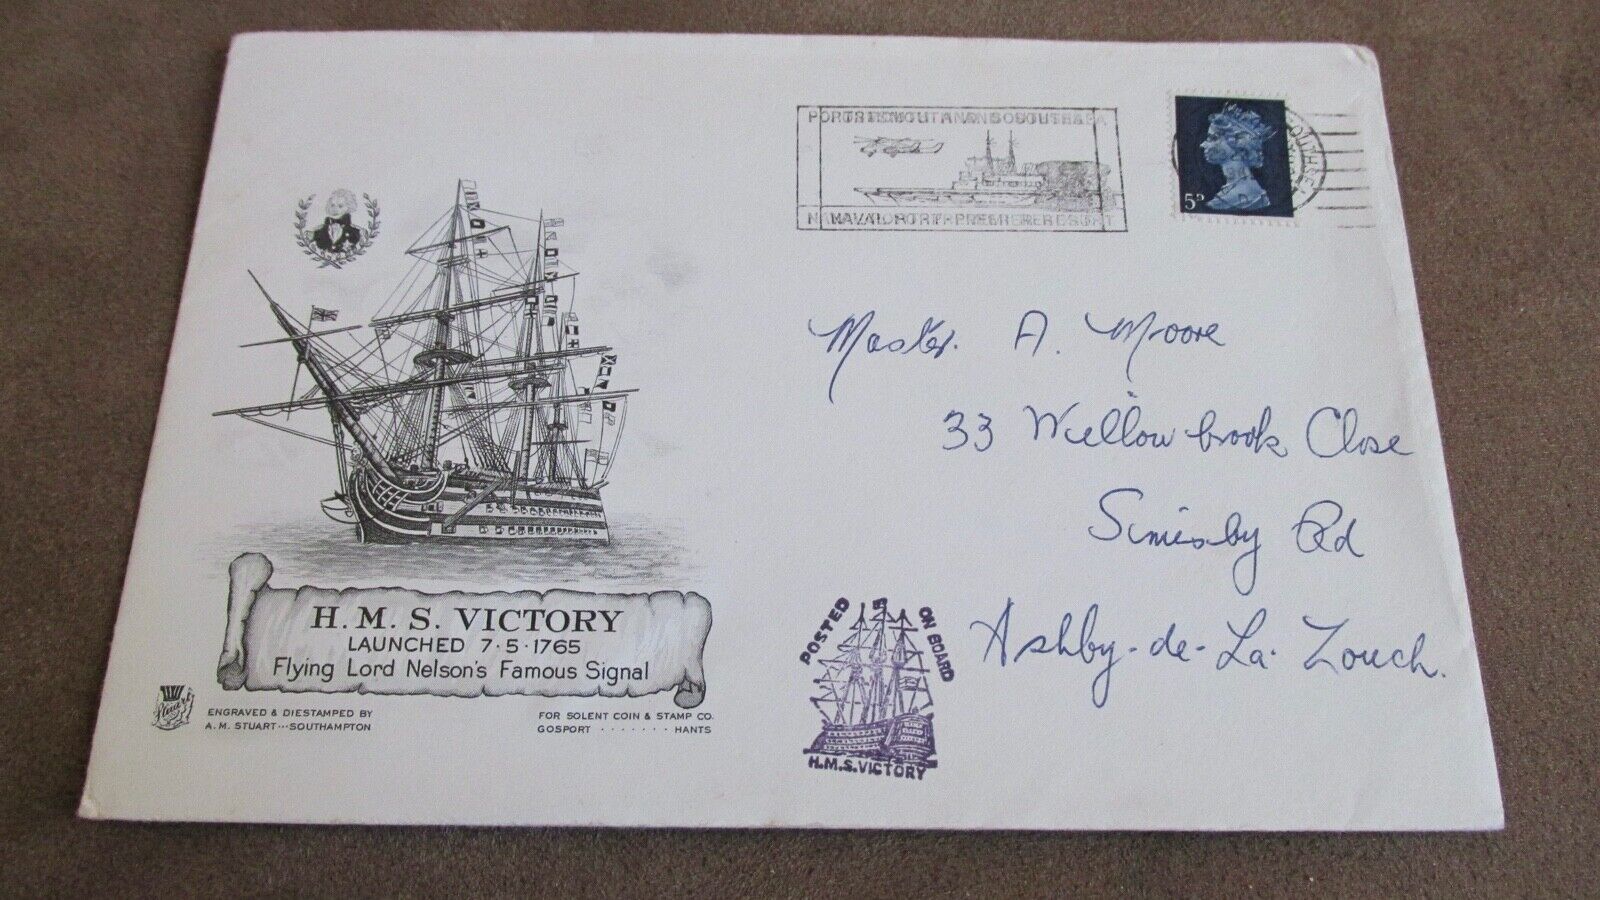 PORTSMOUTH AND SOUTHSEA
NAVAL PORT PREMIER RESORT
5D
SOUTHSEA
Master. A. Moore
33 Willowbrook Close
Smisby Rd
Ashby-de-La-Zouch.
H. M. S. VICTORY
LAUNCHED 7·5·1765
Flying Lord Nelson's Famous Signal
Stuart
ENGRAVED & DIESTAMPED BY
A. M. STUART···SOUTHAMPTON
FOR SOLENT COIN & STAMP CO.
GOSPORT ······· HANTS
POSTED ON BOARD
H.M.S. VICTORY